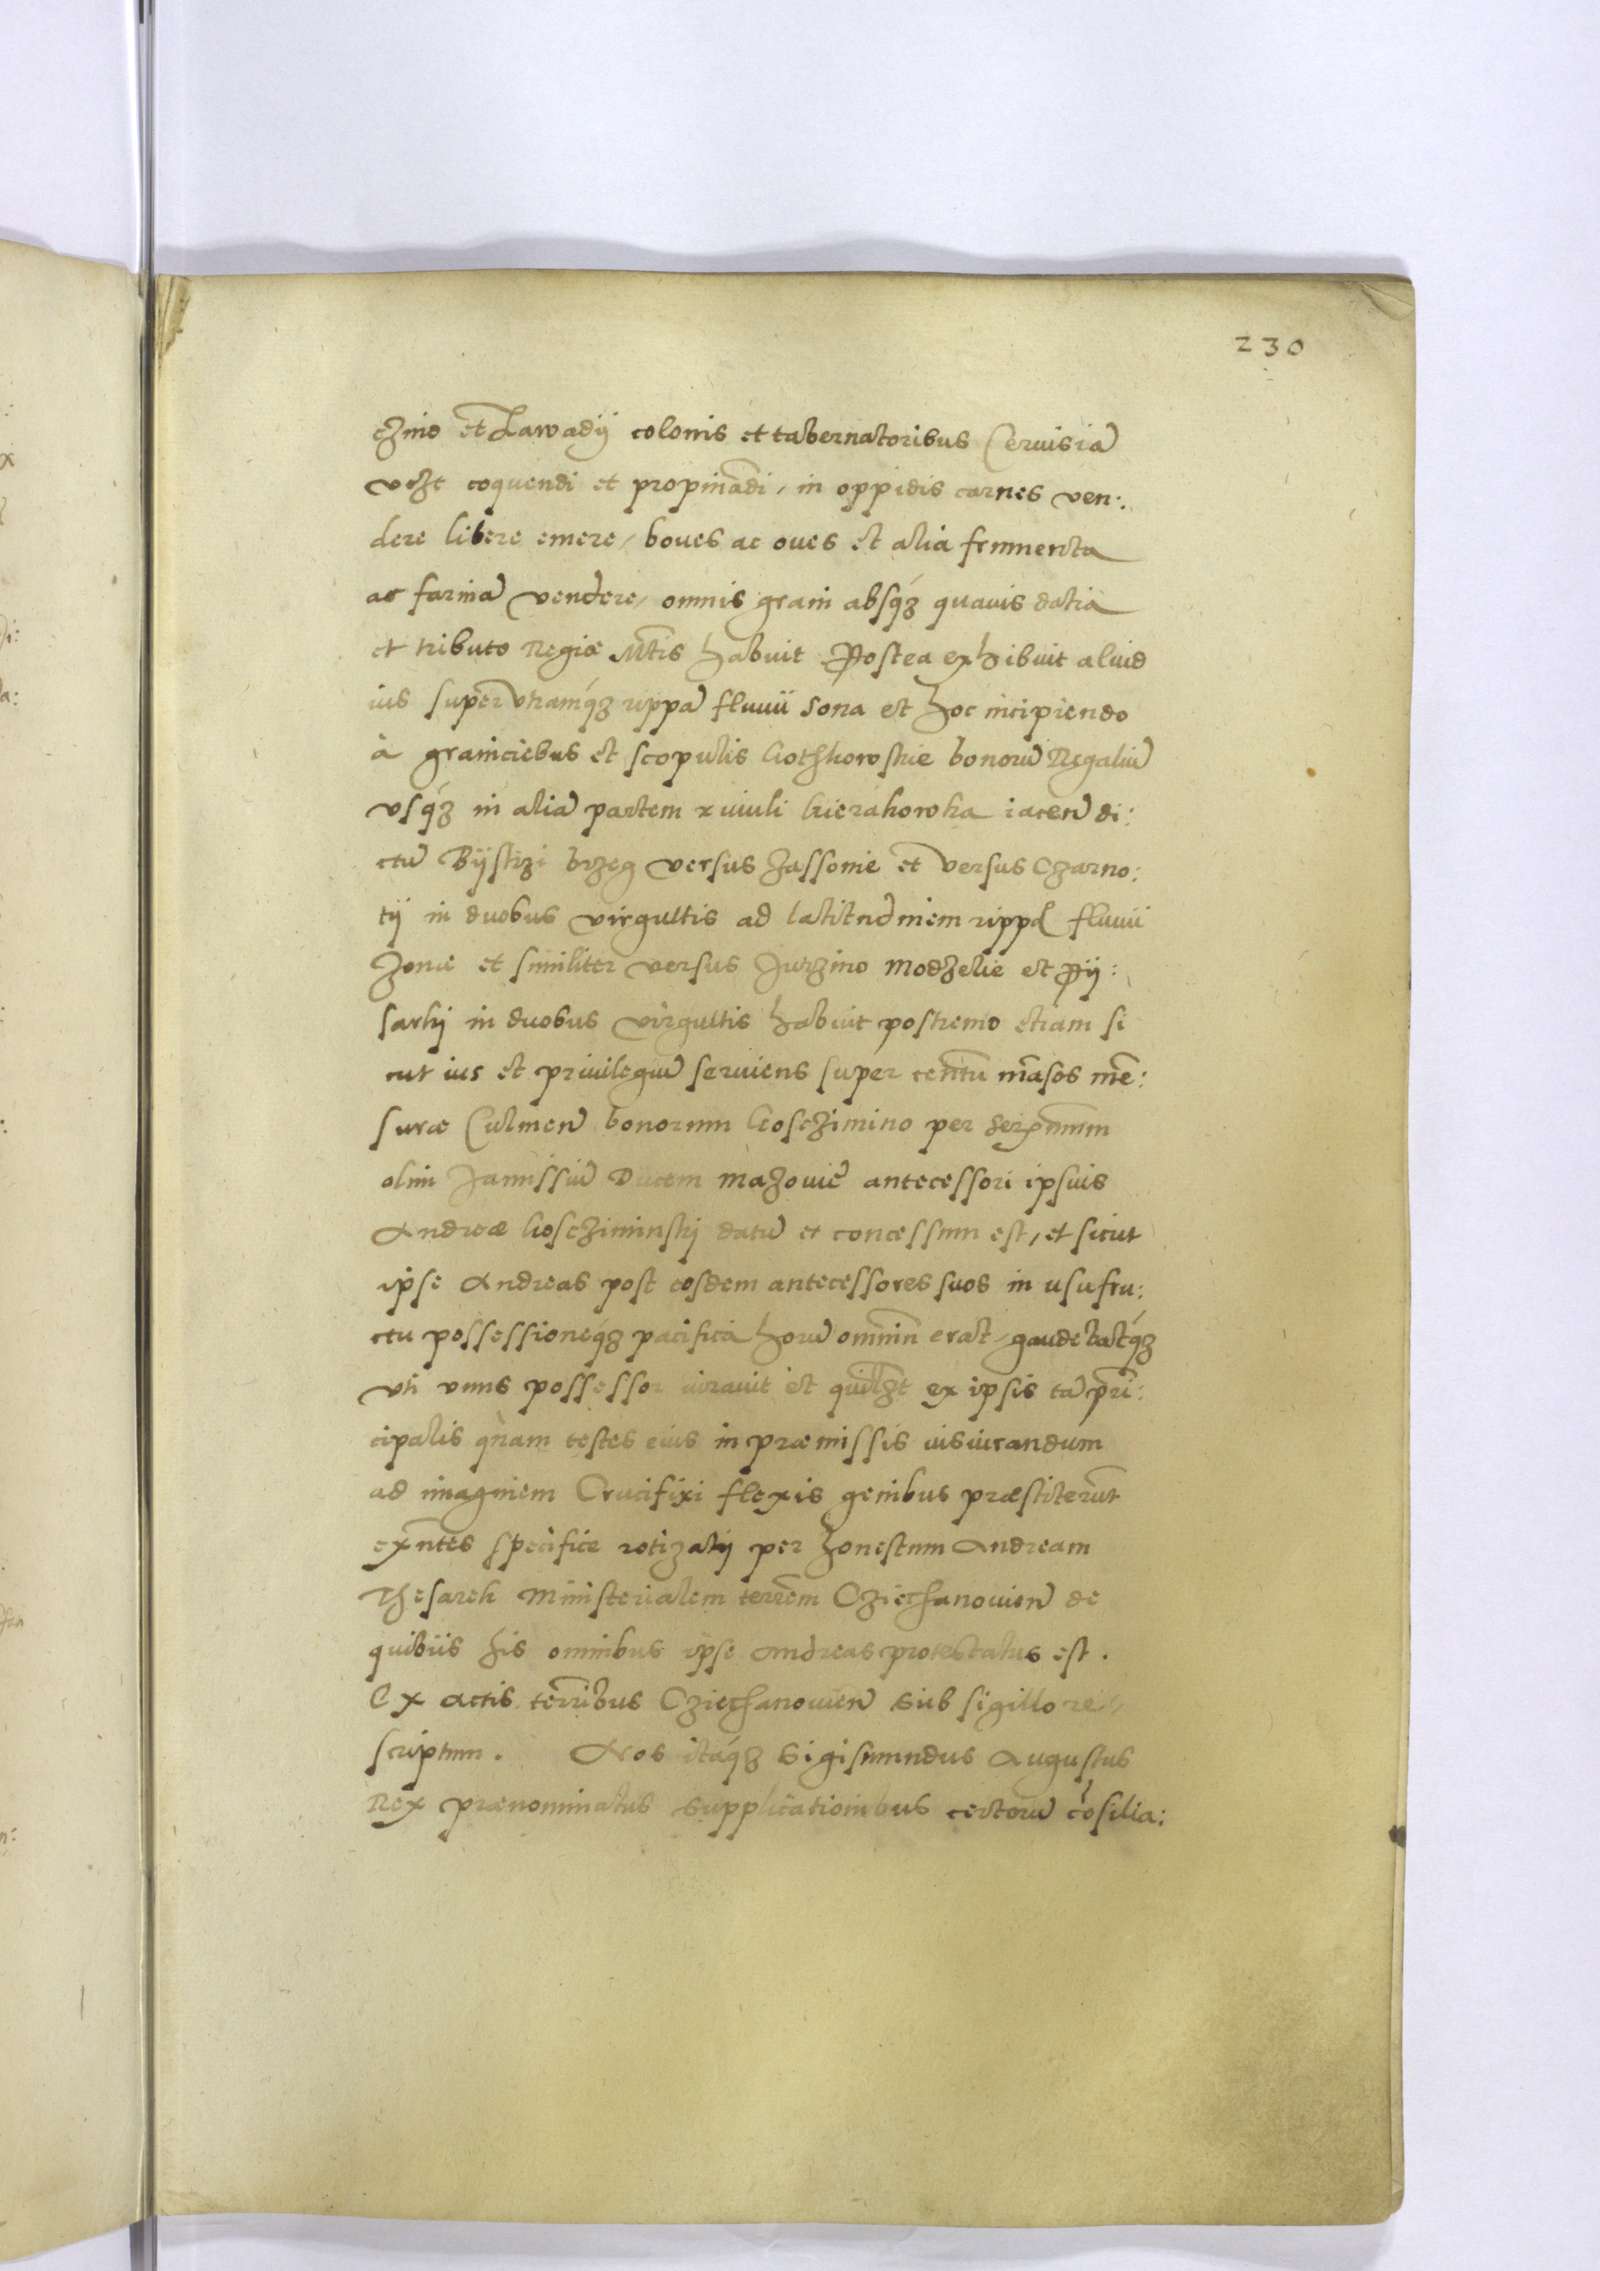 230
czino et Lawadÿ colonis et tabernatoribus Cervisiã
vczt coquendi et propinãdi, in oppidis carnes ven:
dere libere emere, boves ac oves et alia frumenta
ac farinã vendere, omnis grani absq́ʒ quavis datia
et tributo Regiæ Mtis habuit Postea exhibuit aliud
ius super vtramq́ʒ rippã fluvii Sona et hoc incipiendo
à grainciebus et scopulis Gothkowskie bonorũ Regaliũ
vsq́ʒ in aliã partem rivuli Kierzkowka iaceñ di:
ctũ Bÿstrzi brzeg versus Jassonie et versus Czarno:
tÿ in duobus virgultis ad latitudinem rippę fluvii
Zonæ et similiter versus Jurzino Modzelie et Pÿ:
sarky in duobus virgultis habuit postremo etiam si
cut ius et privilegiũ serviens super centũ mãsos mẽ:
suræ Culmeñ bonorum Kosczimino per sereñmum
olim Janussiũ Ducem Mazovie antecessori ipsius
Andreæ Kosczyminsky datũ et concessum est, et sicut
ipse Andreas post eosdem antecessores suos in usufru:
ctu possessioneq́ʒ pacificà horũ omniũ erat, gaudebatq́ʒ
vti unus possessor iuravit et quilʒt ex ipsis tã prĩ:
cipalis quam testes eius in præmissis iusiurandum
ad imaginem Crucifixi flexis genibus præstiterũt
exñtes specifice rotizatÿ per honestum Andream
Thesarek Ministerialem terrem̃ Cziechanovieñ de
quibus his omnibus ipse Andreas protestatus est.
Ex actis terribus Cziechanovieñ sub sigillo re
scriptum. Nos itaq́ʒ Sigismundus Augustus
Rex prænominatus supplicationibus certorũ cõsilia: